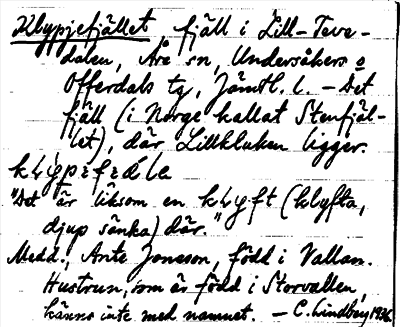 Klyppjefjället fjäll i Lill-Teve-
dalen, Åre sn, Undersåkers o
Offerdals tg, Jämtl. l. – Det
fjäll (i Norge kallat Stenfjäl-
let), där Lillkluken ligger.
"Det är liksom en klyft (klyfta,
djup sänka) där."
Medd.: Ante Jonsson, född i Vallan.
Hustrun, som är född i Storvallen,
känns inte med namnet. – C. Lindberg 1936.